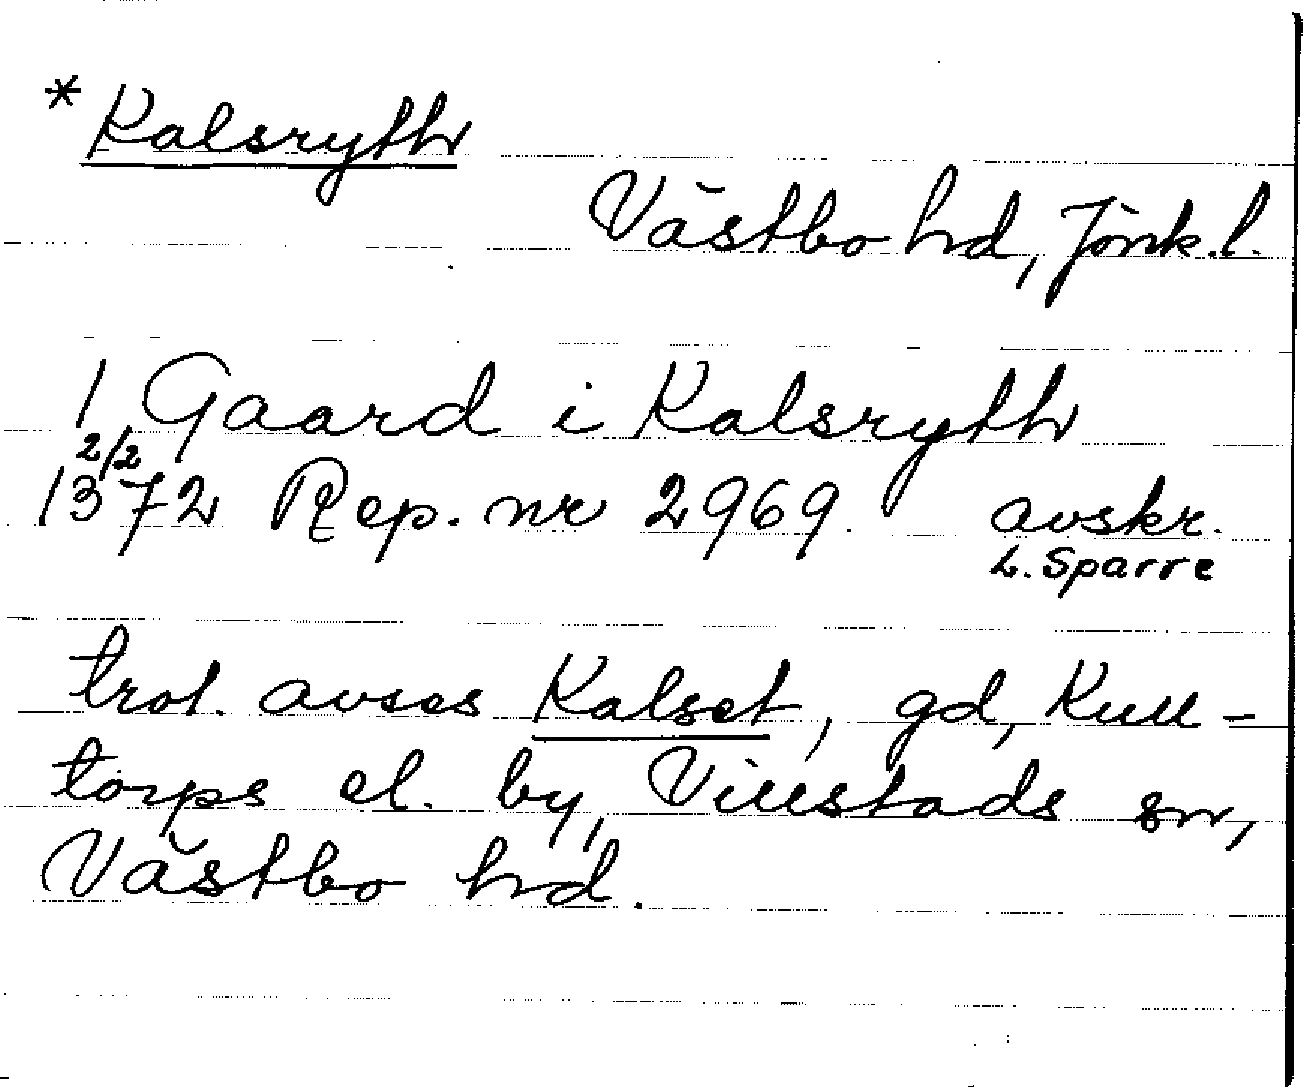 * Kalsryth
Västbo hd, Jönk.l.
1 Gaard i Kalsryth
2/2
1372 Rep. nr 2969. avskr.
L. Sparre
trol. avses Kalset, gd, Kull-
torps el. by, Villstads sn,
Västbo hd.